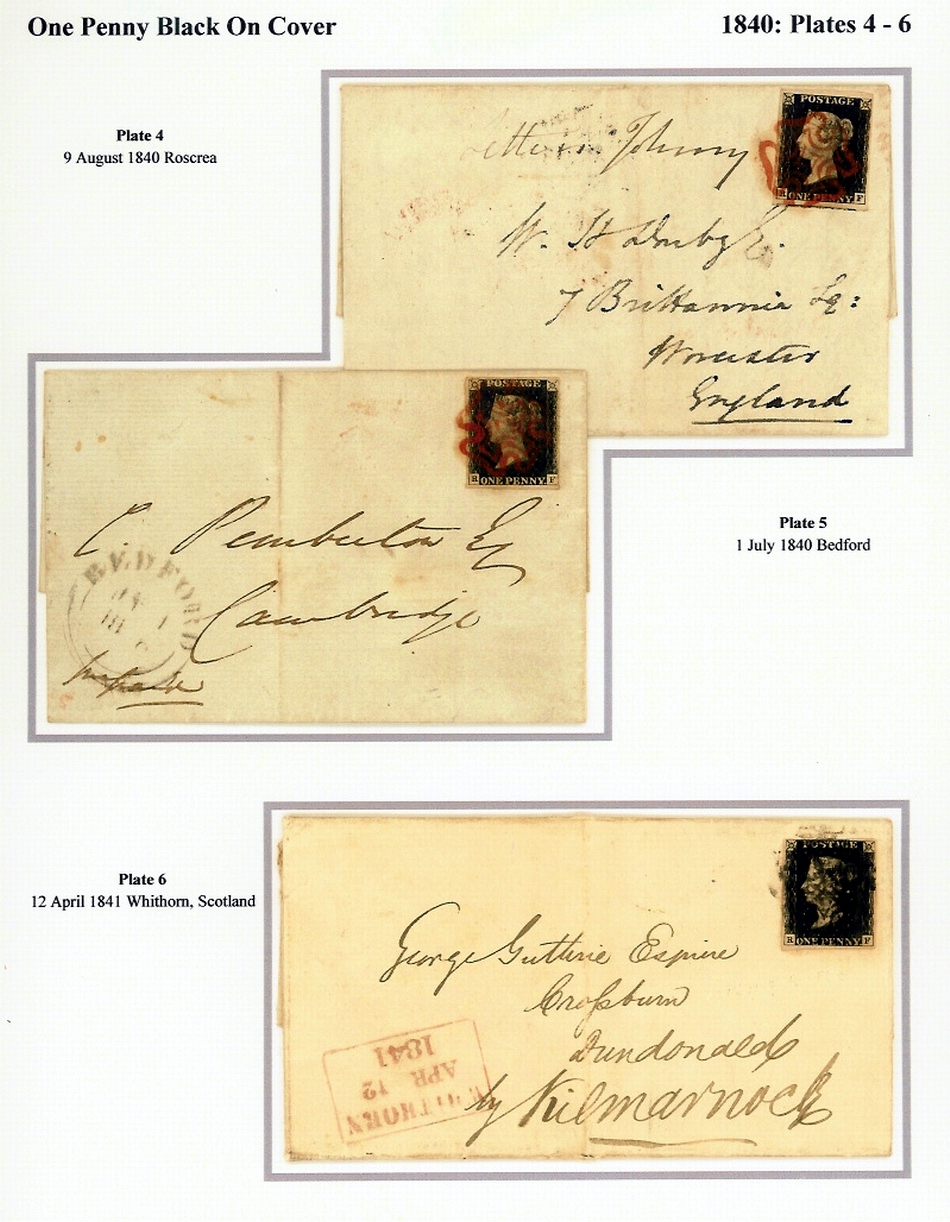 One Penny Black On Cover
1840: Plates 4 - 6
Plate 4
9 August 1840 Roscrea
POSTAGE
R ONE PENNY F
Johnny
W. H Darby Esq.
7 Brittannia Sq:
Worcester
England
POSTAGE
R ONE PENNY F
C. Pemberton Esq
Cambridge
BEDFORD
Plate 5
1 July 1840 Bedford
Plate 6
12 April 1841 Whithorn, Scotland
POSTAGE
R ONE PENNY F
George Guthrie Esquire
Crossburn
Dundonald
by Kilmarnock
WHITHORN
APR 12
1841